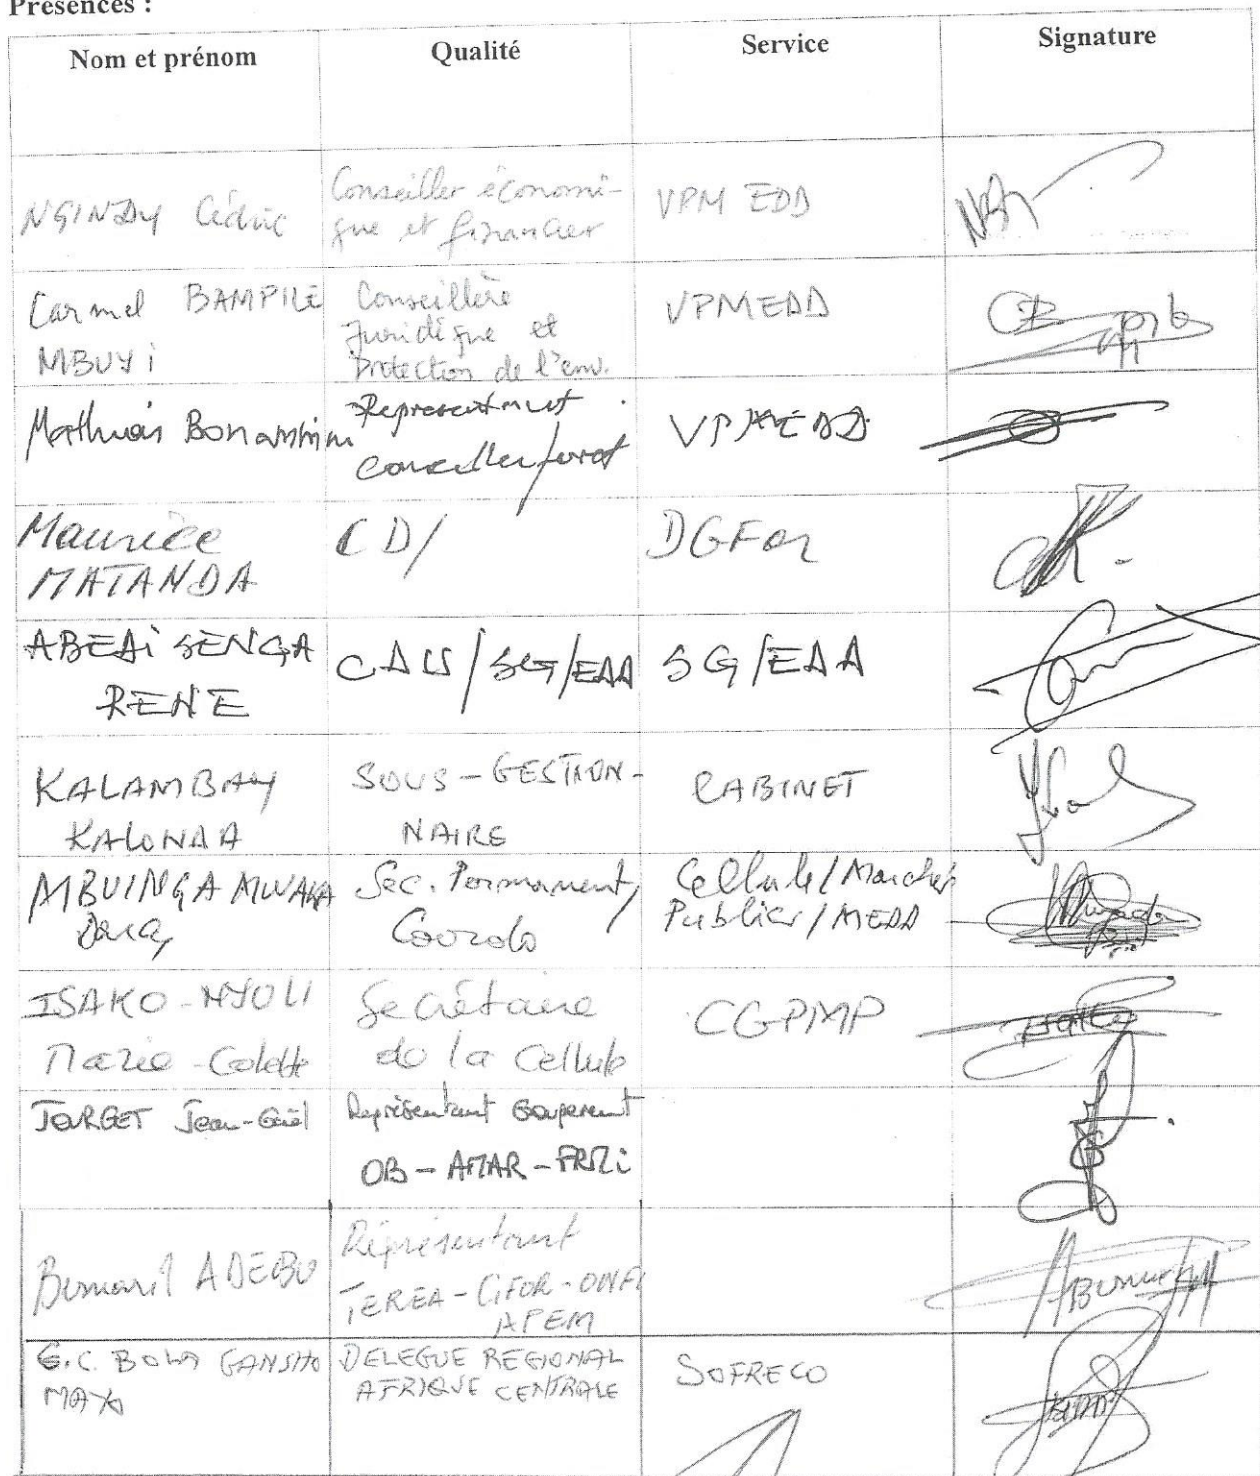 Présences :
Nom et prénom Qualité Service Signature
NGINDY Cédric Conseiller économi-
que et financier VPM EDD
Carmel BAMPILE
MBUYI Conseillère
Juridique et
Protection de l'env. VPMEDD
Représentant
conseiller foret VPMEDD
Maurice
MATANDA CD/ DGFor
SENGA
RENE SG/EDD
KALAMBAY
KALONDA SOUS-GESTION-
NAIRE CABINET
MBUINGA MWAKA Sec. Permanent,
Coordo Cellule/Marchés
Publics/MEDD
ISAKO-NYOLI
Marie-Colette Secrétaire
de la Cellule CGPMP
JORGET Jean-Gaël Représentant Goupement
OB-AMAR-FRMi
Bernard ADEBU Représentant
TEREA-CIFOR-ONFI
APEM
BOLA GANSHO
MAYO DELEGUE REGIONAL
AFRIQUE CENTRALE SOFRECO